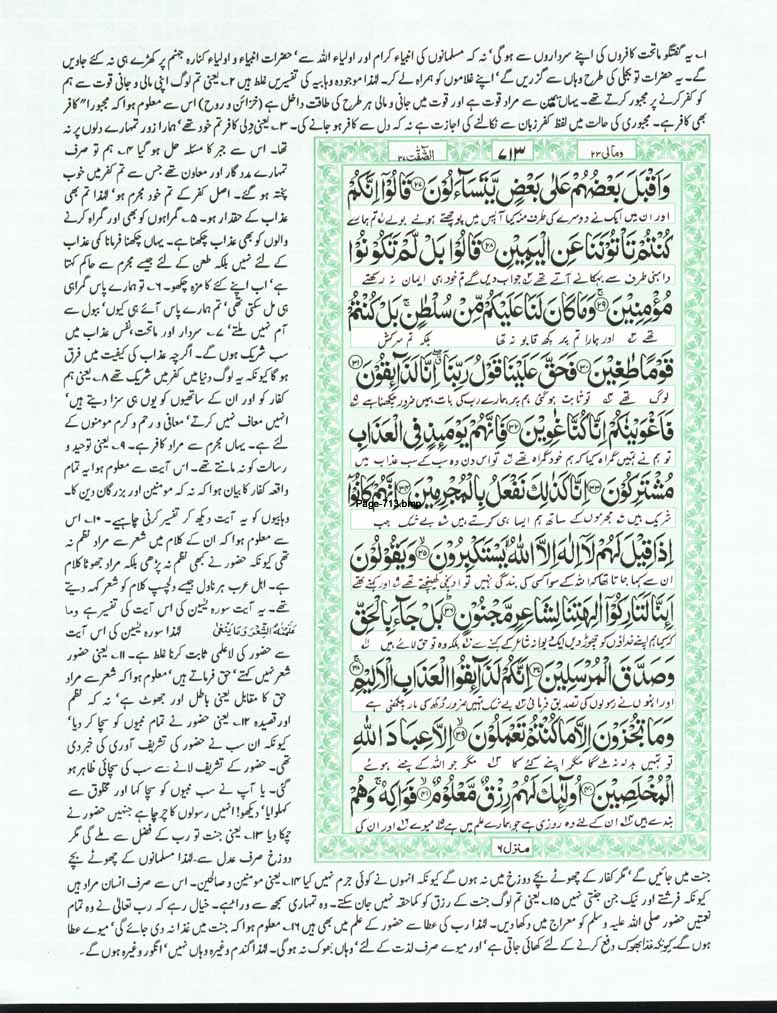 ۱۔ یہ گفتگو ماتحت کافروں کی اپنے سرداروں سے ہوگی' نہ کہ مسلمانوں کی انبیاء کرام اور اولیاء اللہ سے' حضرات انبیاء و اولیاء کنارہ جہنم پر کھڑے ہی نہ کئے جاویں
گے۔ یہ حضرات تو بجلی کی طرح وہاں سے گزریں گے' اپنے غلاموں کو ہمراہ لے کر۔ لہٰذا موجودہ وہابیہ کی تفسیریں غلط ہیں ۲۔ یعنی تم لوگ اپنی مالی و جانی قوت سے ہم
کو کفر کرنے پر مجبور کرتے تھے۔ یہاں یمین سے مراد قوت ہے اور قوت میں جانی و مالی ہر طرح کی طاقت داخل ہے (خزائن و روح) اس سے معلوم ہوا کہ مجبورا" کافر
بھی کافر ہے۔ مجبوری کی حالت میں لفظ کفر زبان سے نکالنے کی اجازت ہے نہ کہ دل سے کافر ہو جانے کی۔ ۳۔ یعنی دلی کافر تم خود تھے' ہمارا زور تمہارے دلوں پر نہ
تھا۔ اس سے جبر کا مسئلہ حل ہو گیا ۴۔ ہم تو صرف
تمہارے مددگار اور معاون تھے جس سے تم کفر میں خوب
پختہ ہو گئے۔ اصل کفر کے تم خود مجرم ہو' لہٰذا تم بھی
عذاب کے حقدار ہو۔ ۵۔ گمراہوں کو بھی اور گمراہ کرنے
والوں کو بھی عذاب چکھنا ہے۔ یہاں چکھنا فرمانا کمی عذاب
کے لئے نہیں بلکہ طعن کے لئے جیسے مجرم سے حاکم کہتا
ہے' اب اپنے کئے کا مزہ چکھو۔ ۶۔ تو ہمارے پاس گمراہی
ہی مل سکتی تھی' تم ہمارے پاس آئے ہی کیوں' ببول سے
آم نہیں ملتے' ۷۔ سردار اور ماتحت نفس عذاب میں
سب شریک ہوں گے۔ اگرچہ عذاب کی کیفیت میں فرق
ہو گا کیونکہ یہ لوگ دنیا میں کفر میں شریک تھے ۸۔ یعنی ہم
کفار کو اور ان کے ساتھیوں کو یوں ہی سزا دیتے ہیں'
انہیں معاف نہیں کرتے' معافی و رحم و کرم مومنوں کے
لئے ہے۔ یہاں مجرم سے مراد کافر ہے۔ ۹۔ یعنی توحید و
رسالت کو نہ مانتے تھے۔ اس آیت سے معلوم ہوا یہ تمام
واقعہ کفار کا بیان ہوا کہ نہ کہ مومنین اور بزرگان دین کا۔
وہابیوں کو یہ آیت دیکھ کر تفسیر کرنی چاہیے۔ ۱۰۔ اس
سے معلوم ہوا کہ ان کے کلام میں شعر سے مراد نظم نہ
تھی کیونکہ حضور نے کبھی نظم نہ پڑھی بلکہ مراد جھوٹا کلام
ہے۔ اہل عرب ہر ناول جیسے دلچسپ کلام کو شعر کہہ دیتے
تھے۔ یہ آیت سورہ یٰسین کی اس آیت کی تفسیر ہے وما
عَلَّمْنٰهُ الشِّعْرَ وَمَا يَنْبَغِىْ لہٰذا سورہ یٰسین کی اس آیت
سے حضور کی لاعلمی ثابت کرنا غلط ہے۔ ۱۱۔ یعنی حضور
شعر نہیں کہتے' حق فرماتے ہیں' معلوم ہوا کہ شعر سے مراد
حق کا مقابل یعنی باطل اور جھوٹ ہے' نہ کہ نظم
اور قصیدہ ۱۲۔ یعنی حضور نے تمام نبیوں کو سچا کر دیا'
کیونکہ ان سب نے حضور کی تشریف آوری کی خبر دی
تھی۔ حضور کے تشریف لانے سے سب کی سچائی ظاہر ہو
گئی۔ یا آپ نے سب نبیوں کو سچا کہا اور مخلوق سے
کہلوایا' دیکھو! انہیں رسولوں کا چرچا ہے جنہیں حضور نے
چمکا دیا ۱۳۔ یعنی جنت تو رب کے فضل سے ملے گی مگر
دوزخ صرف عدل سے۔ لہٰذا مسلمانوں کے چھوٹے بچے
ومالی ۲۳
۷۱۳
الصّٰفّٰت ۳۷
وَاَقْبَلَ بَعْضُهُمْ عَلٰى بَعْضٍ يَّتَسَآءَلُوْنَ ﴿۲۷﴾ قَالُوْٓا اِنَّكُمْ
اور ان میں ایک نے دوسرے کی طرف منہ کیا آپس میں پوچھتے ہوئے بولے تم ہمارے
كُنْتُمْ تَاْتُوْنَنَا عَنِ الْيَمِيْنِ ﴿۲۸﴾ قَالُوْا بَلْ لَّمْ تَكُوْنُوْا
داہنی طرف سے بہکانے آتے تھے جواب دیں گے تم خود ہی ایمان نہ رکھتے
مُؤْمِنِيْنَ ﴿۲۹﴾ وَمَا كَانَ لَنَا عَلَيْكُمْ مِّنْ سُلْطٰنٍ بَلْ كُنْتُمْ
تھے اور ہمارا تم پر کچھ قابو نہ تھا بلکہ تم سرکش
قَوْمًا طٰغِيْنَ ﴿۳۰﴾ فَحَقَّ عَلَيْنَا قَوْلُ رَبِّنَآ اِنَّا لَذَآئِقُوْنَ ﴿۳۱﴾
لوگ تھے تو ثابت ہو گئی ہم پر ہمارے رب کی بات ہمیں ضرور چکھنا ہے
فَاَغْوَيْنٰكُمْ اِنَّا كُنَّا غٰوِيْنَ ﴿۳۲﴾ فَاِنَّهُمْ يَوْمَئِذٍ فِى الْعَذَابِ
تو ہم نے تمہیں گمراہ کیا کہ ہم خود گمراہ تھے تو اس دن وہ سب کے سب عذاب میں
مُشْتَرِكُوْنَ ﴿۳۳﴾ اِنَّا كَذٰلِكَ نَفْعَلُ بِالْمُجْرِمِيْنَ ﴿۳۴﴾ اِنَّهُمْ كَانُوْٓا
Page-713.bmp
شریک ہیں مجرموں کے ساتھ ہم ایسا ہی کرتے ہیں بے شک جب
اِذَا قِيْلَ لَهُمْ لَآ اِلٰهَ اِلَّا اللّٰهُ يَسْتَكْبِرُوْنَ ﴿۳۵﴾ وَيَقُوْلُوْنَ
ان سے کہا جاتا تھا کہ اللہ کے سوا کسی کی بندگی نہیں تو اونچی کھینچتے تھے اور کہتے تھے
اَئِنَّا لَتَارِكُوْٓا اٰلِهَتِنَا لِشَاعِرٍ مَّجْنُوْنٍ ﴿۳۶﴾ بَلْ جَآءَ بِالْحَقِّ
کیا ہم اپنے خداؤں کو چھوڑ دیں ایک دیوانہ شاعر کے کہنے سے بلکہ وہ تو حق لائے ہیں
وَصَدَّقَ الْمُرْسَلِيْنَ ﴿۳۷﴾ اِنَّكُمْ لَذَآئِقُوا الْعَذَابِ الْاَلِيْمِ ﴿۳۸﴾
اور انہوں نے رسولوں کی تصدیق فرمائی بے شک تمہیں ضرور دکھ کی مار چکھنی ہے
وَمَا تُجْزَوْنَ اِلَّا مَا كُنْتُمْ تَعْمَلُوْنَ ﴿۳۹﴾ اِلَّا عِبَادَ اللّٰهِ
تو تمہیں بدلہ نہ ملے گا مگر اپنے کئے کا مگر جو اللہ کے چنے ہوئے
الْمُخْلَصِيْنَ ﴿۴۰﴾ اُولٰٓئِكَ لَهُمْ رِزْقٌ مَّعْلُوْمٌ ﴿۴۱﴾ فَوَاكِهُ وَهُمْ
بندے ہیں ان کے لئے وہ روزی ہے جو ہمارے علم میں ہے میوے اور ان کی
منزل ۶
جنت میں جائیں گے' مگر کفار کے چھوٹے بچے دوزخ میں نہ ہوں گے کیونکہ انہوں نے کوئی جرم نہیں کیا ۱۴۔ یعنی مومنین و صالحین۔ اس سے صرف انسان مراد ہیں
کیونکہ فرشتے اور نیک جن جنتی نہیں ۱۵۔ یعنی تم لوگ جنت کے رزق کو کماحقہ نہیں جان سکتے۔ وہ تمہاری سمجھ سے وراء ہے۔ خیال رہے کہ رب تعالیٰ نے وہ تمام
نعمتیں حضور صلی اللہ علیہ وسلم کو معراج میں دکھا دیں۔ لہٰذا رب کی عطا سے حضور کے علم میں بھی ہیں ۱۶۔ معلوم ہوا کہ جنت میں غذا نہ دی جائے گی' میوے عطا
ہوں گے۔ کیونکہ غذا بھوک دفع کرنے کے لئے کھائی جاتی ہے' اور میوے صرف لذت کے لئے' وہاں بھوک نہ ہو گی۔ لہٰذا گندم وغیرہ وہاں نہیں' انگور وغیرہ ہوں گے۔